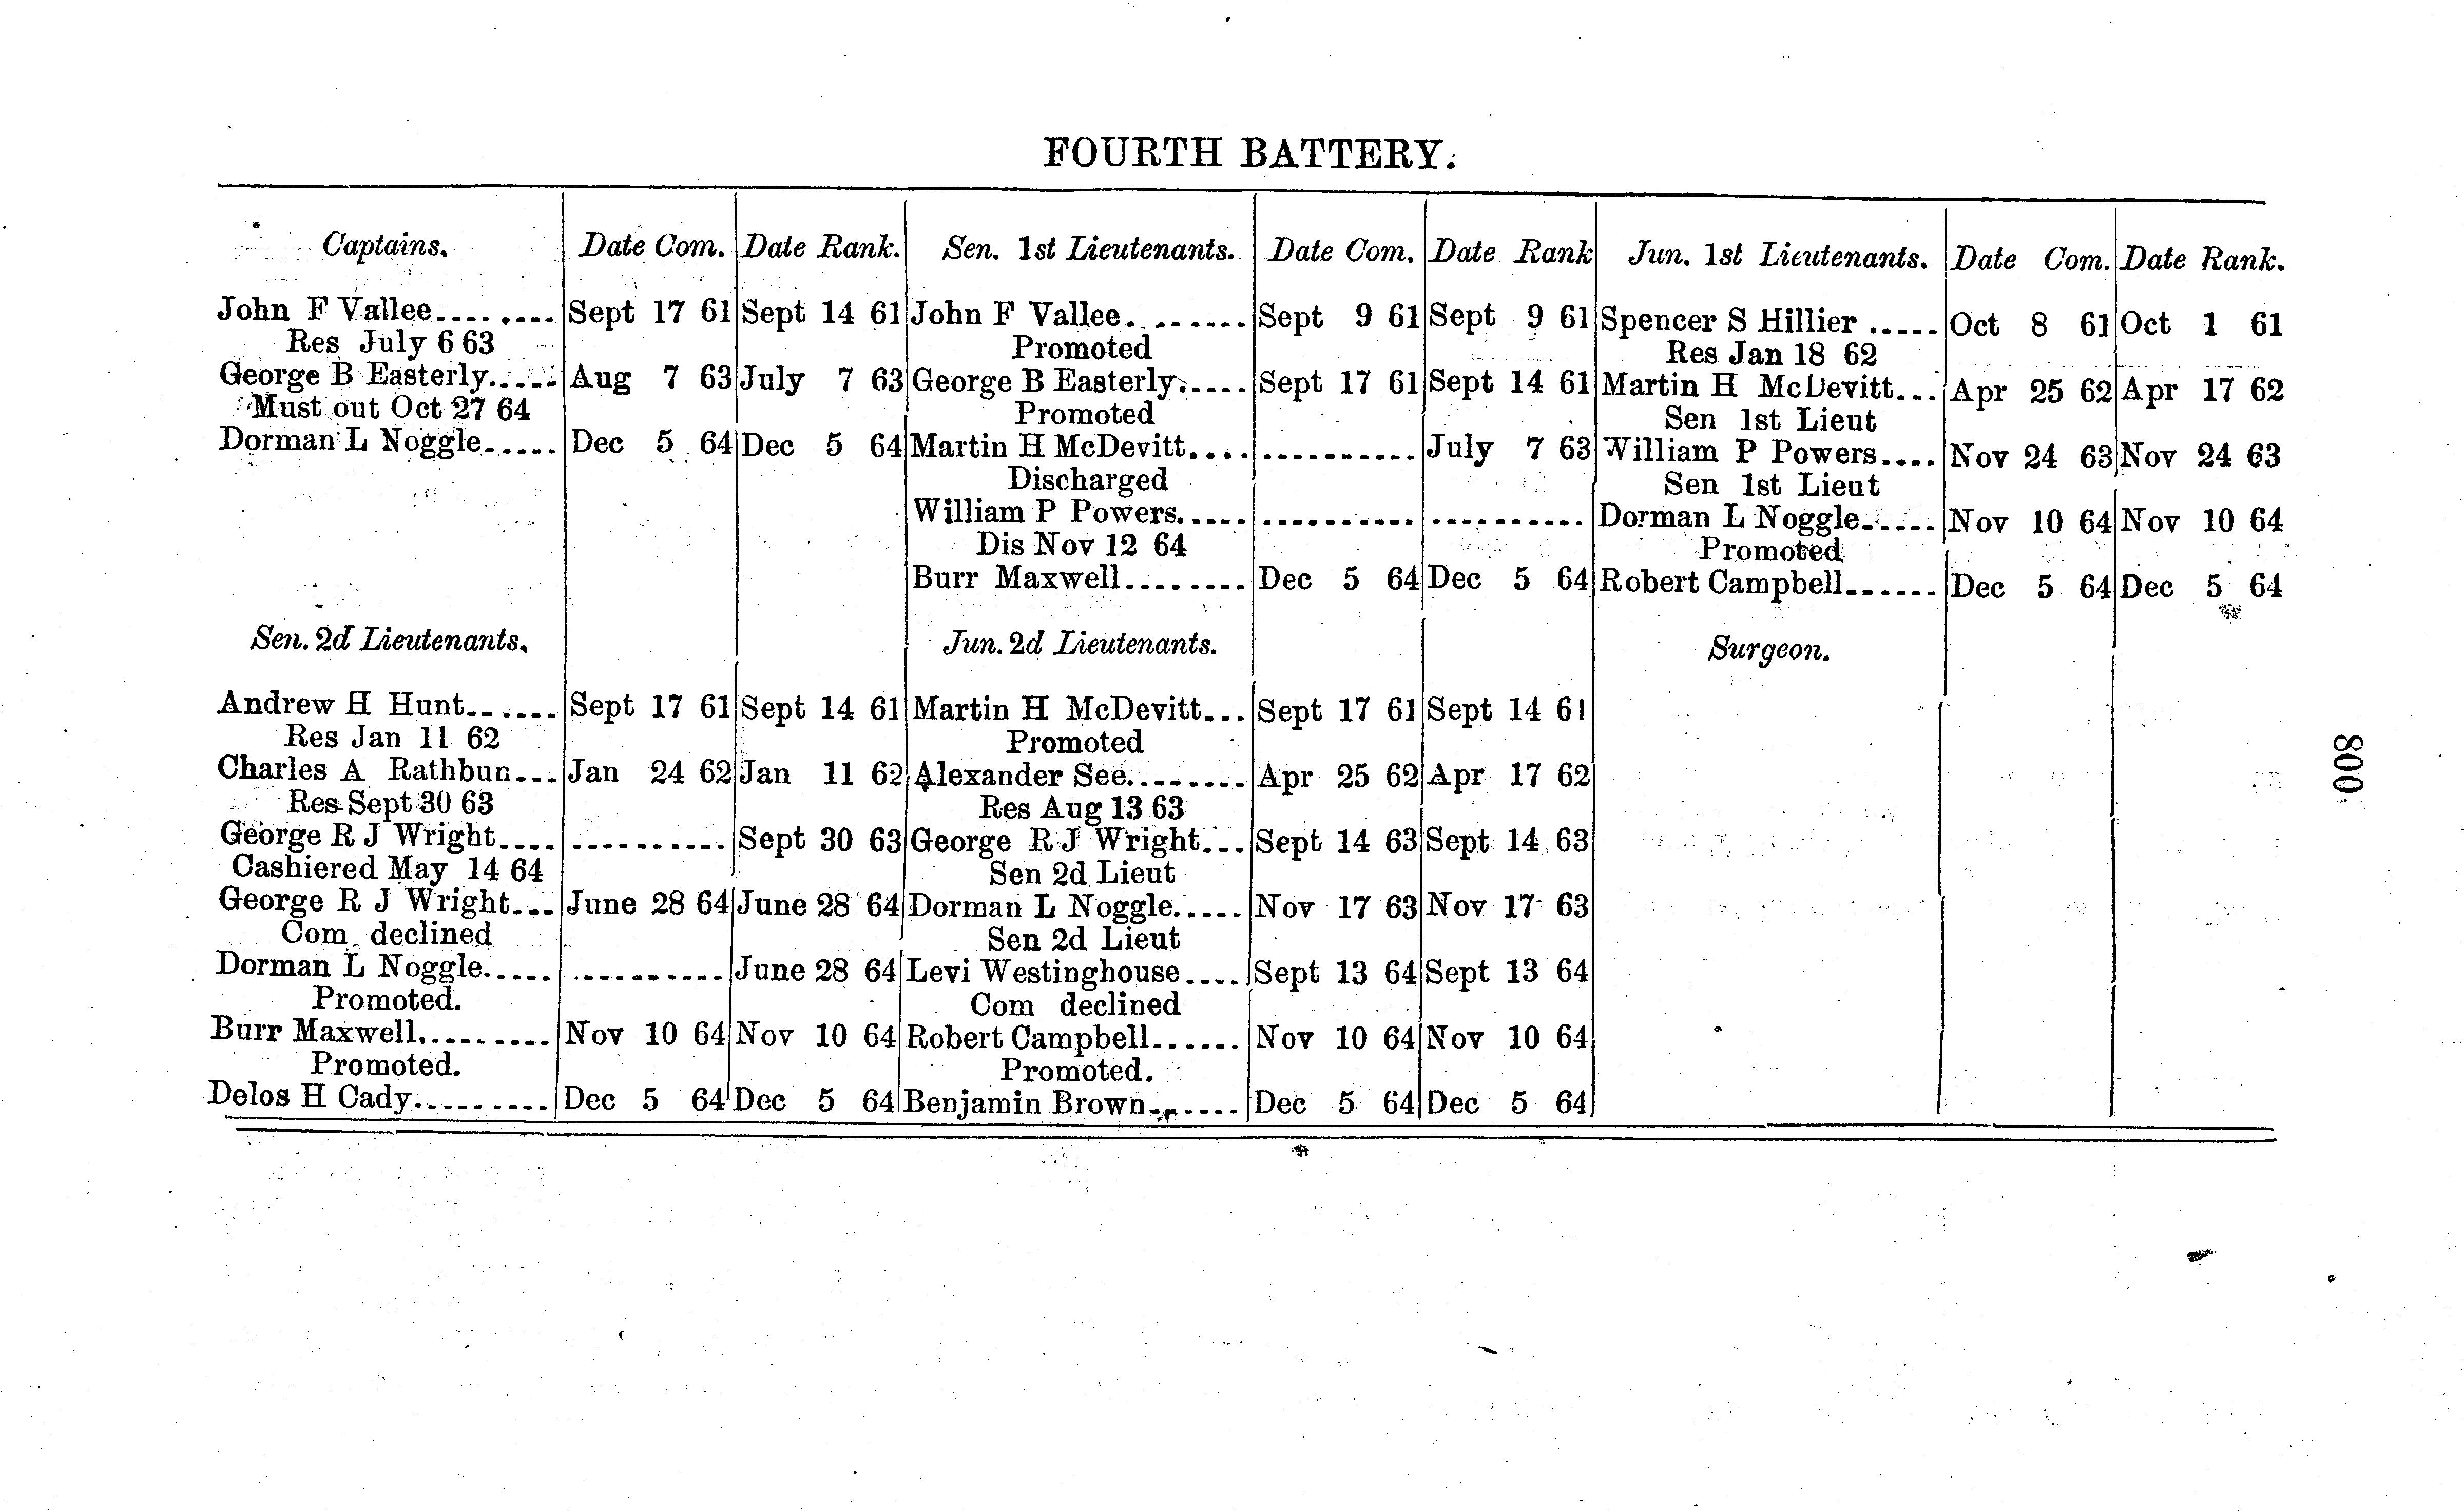 FOURTH BATTERY.
Captains. Date Com. Date Rank. Sen. 1st Lieutenants. Date Com. Date Rank Jun. 1st Lieutenants. Date Com. Date Rank.
John F Vallee........ Sept 17 61 Sept 14 61 John F Vallee........ Sept 9 61 Sept 9 61 Spencer S Hillier ..... Oct 8 61 Oct 1 61
Res July 6 63 Promoted Res Jan 18 62
George B Easterly..... Aug 7 63 July 7 63 George B Easterly..... Sept 17 61 Sept 14 61 Martin H McDevitt... Apr 25 62 Apr 17 62
Must out Oct 27 64 Promoted Sen 1st Lieut
Dorman L Noggle...... Dec 5 64 Dec 5 64 Martin H McDevitt.... .......... July 7 63 William P Powers.... Nov 24 63 Nov 24 63
Discharged Sen 1st Lieut
William P Powers..... .......... .......... Dorman L Noggle..... Nov 10 64 Nov 10 64
Dis Nov 12 64 Promoted
Burr Maxwell........ Dec 5 64 Dec 5 64 Robert Campbell...... Dec 5 64 Dec 5 64
Sen. 2d Lieutenants. Jun. 2d Lieutenants. Surgeon.
Andrew H Hunt...... Sept 17 61 Sept 14 61 Martin H McDevitt... Sept 17 61 Sept 14 61
Res Jan 11 62 Promoted
Charles A Rathbun... Jan 24 62 Jan 11 62 Alexander See........ Apr 25 62 Apr 17 62
Res Sept 30 63 Res Aug 13 63
George R J Wright.... .......... Sept 30 63 George R J Wright... Sept 14 63 Sept 14 63
Cashiered May 14 64 Sen 2d Lieut
George R J Wright... June 28 64 June 28 64 Dorman L Noggle..... Nov 17 63 Nov 17 63
Com declined Sen 2d Lieut
Dorman L Noggle..... .......... June 28 64 Levi Westinghouse.... Sept 13 64 Sept 13 64
Promoted. Com declined
Burr Maxwell......... Nov 10 64 Nov 10 64 Robert Campbell...... Nov 10 64 Nov 10 64
Promoted. Promoted.
Delos H Cady......... Dec 5 64 Dec 5 64 Benjamin Brown...... Dec 5 64 Dec 5 64
800